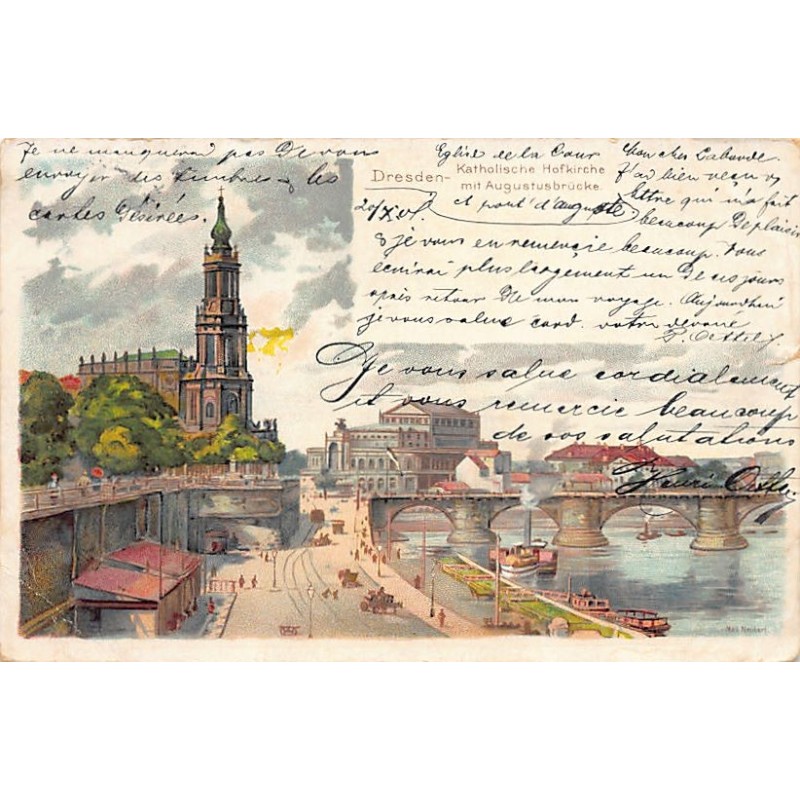 Je ne manquerai pas de vous
envoyer des timbres & les
cartes désirées.
Eglise de la Cour
Dresden-
Katholische Hofkirche
mit Augustusbrücke.
et pont d'auguste
Mon cher Laborde
J'ai bien reçu v/
lettre qui m'a fait
beaucoup de plaisir
& je vous en remercie beaucoup. Vous
écrirai plus largement un de ces jours
après retour de mon voyage. Aujourd'hui
je vous salue cord. votre dévoué
Je vous salue cordialement
et vous remercie beaucoup
de vos salutations
Henri